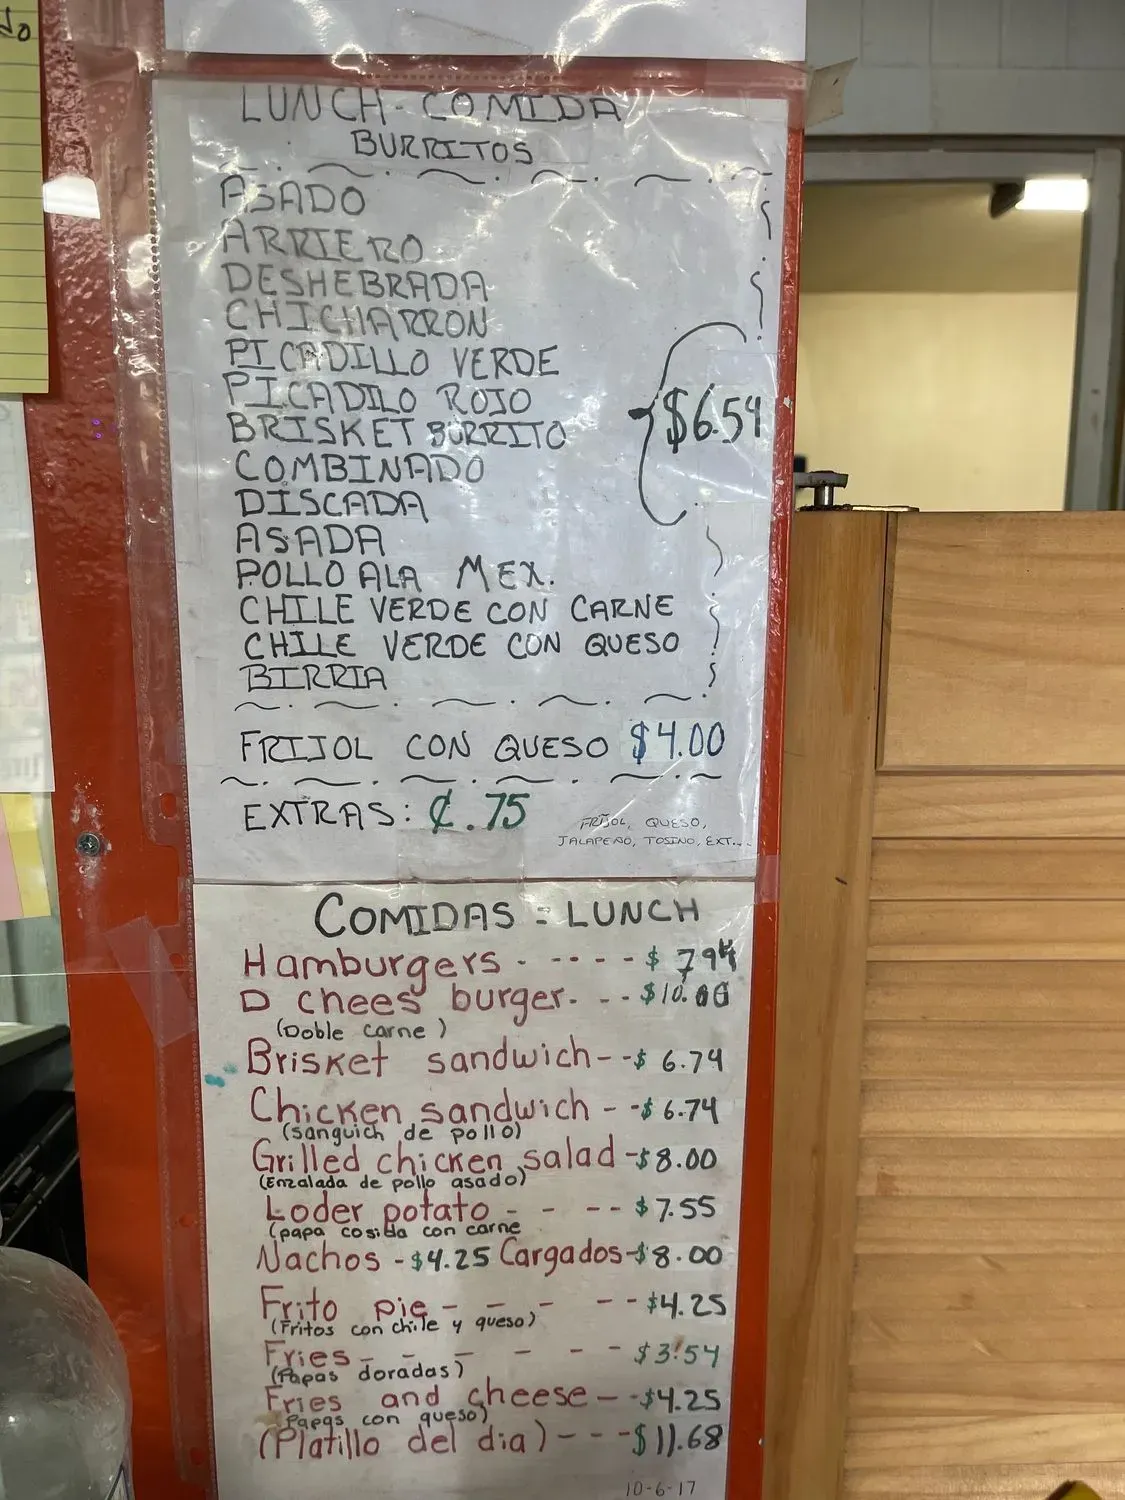 LUNCH - COMIDA
BURRITOS
ASADO
ARRIERO
DESHEBRADA
CHICHARRON
PICADILLO VERDE
PICADILO ROJO
BRISKET BURRITO
$6.54
COMBINADO
DISCADA
ASADA
POLLO ALA MEX.
CHILE VERDE CON CARNE
CHILE VERDE CON QUESO
BIRRIA
FRIJOL CON QUESO $4.00
EXTRAS: ¢.75
FRIJOL, QUESO,
JALAPEÑO, TOSINO, EXT...
COMIDAS = LUNCH
Hamburgers - - - - - $ 7.94
D chees burger. - - $10.00
(Doble carne)
Brisket sandwich - - $ 6.74
Chicken sandwich - - $ 6.74
(sanguich de pollo)
Grilled chicken salad - $8.00
(Enzalada de pollo asado)
Loder potato - - - - $7.55
(papa cosida con carne
Nachos - $4.25 Cargados - $8.00
Frito pie - - - - - $4.25
(Fritos con chile y queso)
Fries - - - - - - $3.54
(Papas doradas)
Fries and cheese - - $4.25
(Papas con queso)
(Platillo del dia) - - - $11.68
10-6-17